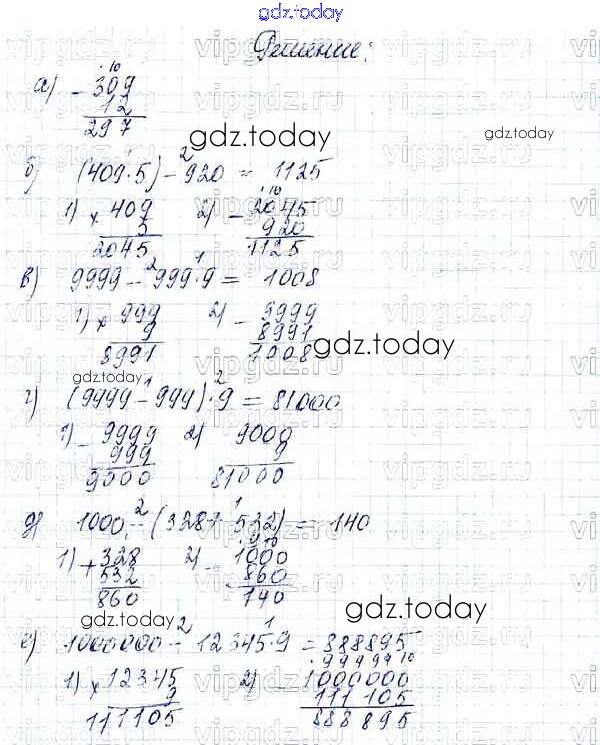 gdz.today
Решение:
а) - 309
12
297
gdz.today
б) (409·5) - 920 = 1125
1) × 409 2) - 2045
5 920
2045 1125
в) 9999 - 999·9 = 1008
1) × 999 2) - 9999
9 8991
8991 1008
gdz.today
gdz.today
г) (9999 - 999)·9 = 81000
1) - 9999 2) 9000
999 9
9000 81000
д) 1000 - (328+532) = 140
1) + 328 2) - 1000
532 860
860 140
gdz.today
gdz.today
е) 1000000 - 12345·9 = 888895
1) × 12345 2) - 1000000
9 111 105
111105 888 895